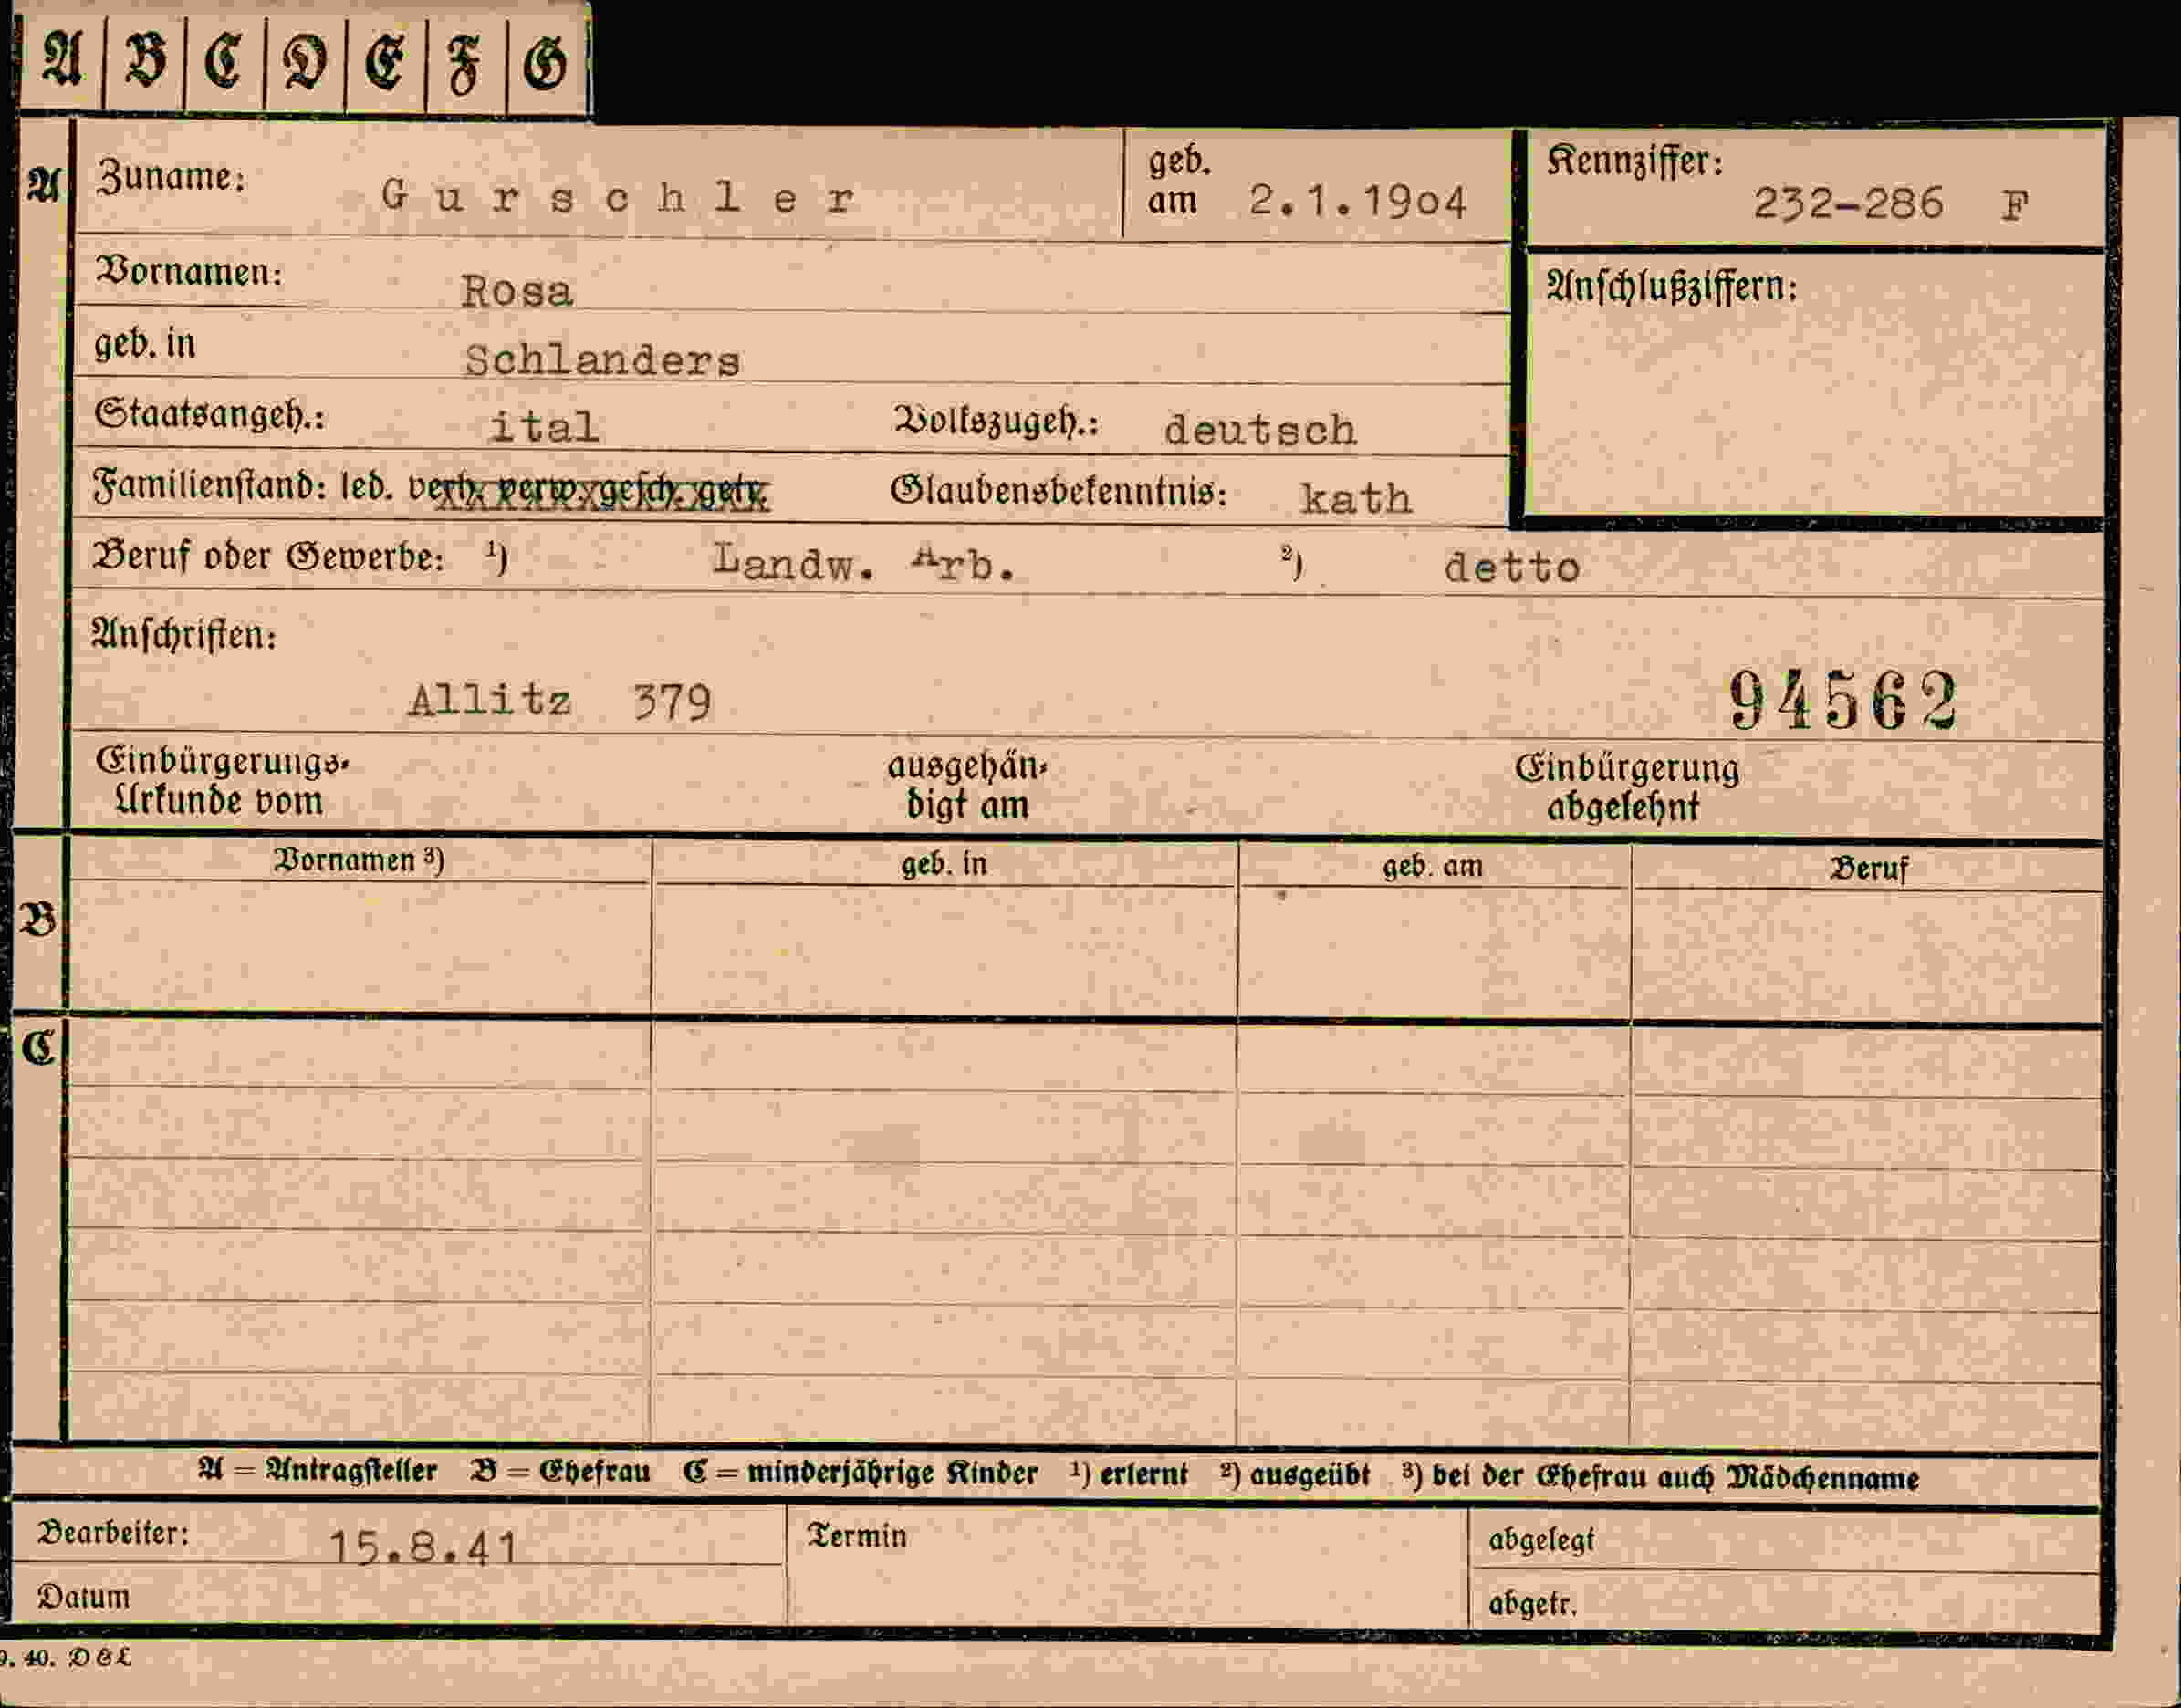 A B C D E F G
A Zuname: Gurschler geb. am 2.1.1904 Kennziffer: 232-286 F
Vornamen: Rosa Anschlußziffern:
geb. in Schlanders
Staatsangeh.: ital Volkszugeh.: deutsch
Familienstand: led. verh. verw. gesch. getr. Glaubensbekenntnis: kath
Beruf oder Gewerbe: ¹) Landw. Arb. ²) detto
Anschriften:
Allitz 379 94562
Einbürgerungs- ausgehän- Einbürgerung
Urkunde vom digt am abgelehnt
Vornamen ³) geb. in geb. am Beruf
B
C
A = Antragsteller B = Ehefrau C = minderjährige Kinder ¹) erlernt ²) ausgeübt ³) bei der Ehefrau auch Mädchenname
Bearbeiter: 15.8.41 Termin abgelegt
Datum abgetr.
9. 40. D&L